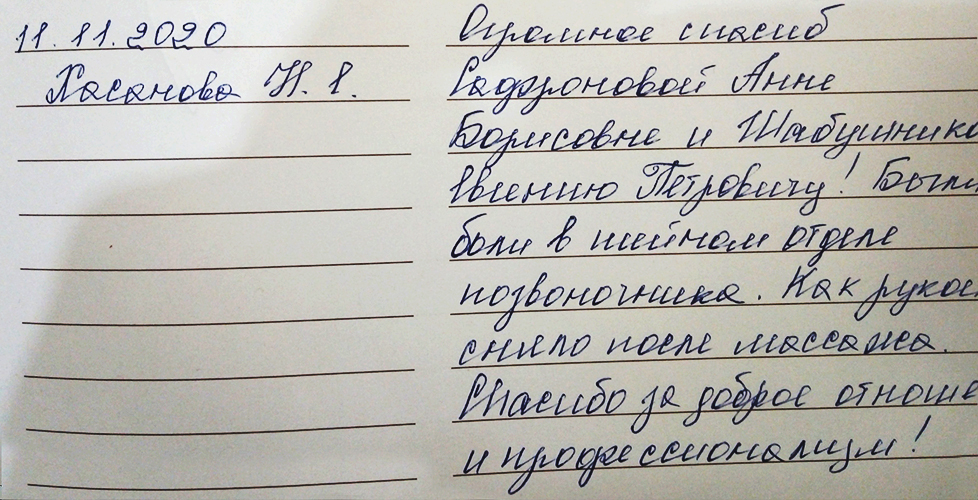 11.11.2020
Хасанова Н. Е.
Огромное спасиб
Садрроновой Анне
Борисовне и Шабушнико
Евгению Петровичу! Были
боли в шейном отделе
позвоночника. Как рукой
сняло после массажа.
Спасибо за доброе отноше
и профессионализм!